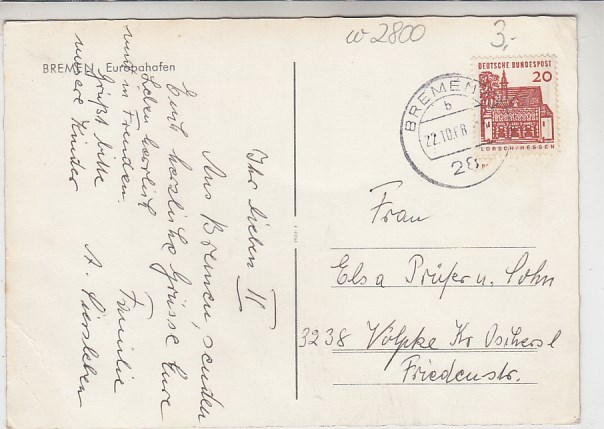 w 2800
3,-
BREMEN Europahafen
DEUTSCHE BUNDESPOST
20
LORSCH/HESSEN
BREMEN
b
22.10.68
28
Ihr lieben II
Aus Bremen, senden
Euch herzliche Grüsse Eure
Lieben
und in Freuden. Familie
Grüßt bitte
unsere Kinder A.
Frau
Elsa Prüfer u. Sohn
3238 Völpke Kr Oschersl
Friedenstr.